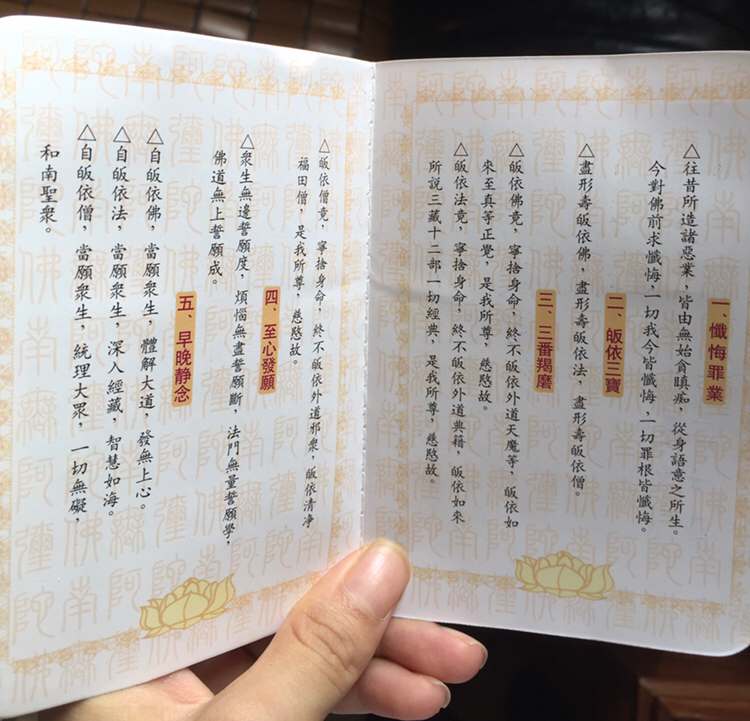 一、懺悔罪業
△往昔所造諸惡業，皆由無始貪瞋痴，從身語意之所生。
今對佛前求懺悔，一切我今皆懺悔，一切罪根皆懺悔。
二、皈依三寶
△盡形壽皈依佛，盡形壽皈依法，盡形壽皈依僧。
三、三番羯磨
△皈依佛竟，寧捨身命，終不皈依外道天魔等，皈依如
來至真等正覺，是我所尊，慈愍故。
△皈依法竟，寧捨身命，終不皈依外道典籍，皈依如來
所說三藏十二部一切經典，是我所尊，慈愍故。
△皈依僧竟，寧捨身命，終不皈依外道邪衆，皈依清净
福田僧，是我所尊，慈愍故。
四、至心發願
△衆生無邊誓願度，煩惱無盡誓願斷，法門無量誓願學，
佛道無上誓願成。
五、早晚静念
△自皈依佛，當願衆生，體解大道，發無上心。
△自皈依法，當願衆生，深入經藏，智慧如海。
△自皈依僧，當願衆生，統理大眾，一切無礙，
和南聖衆。